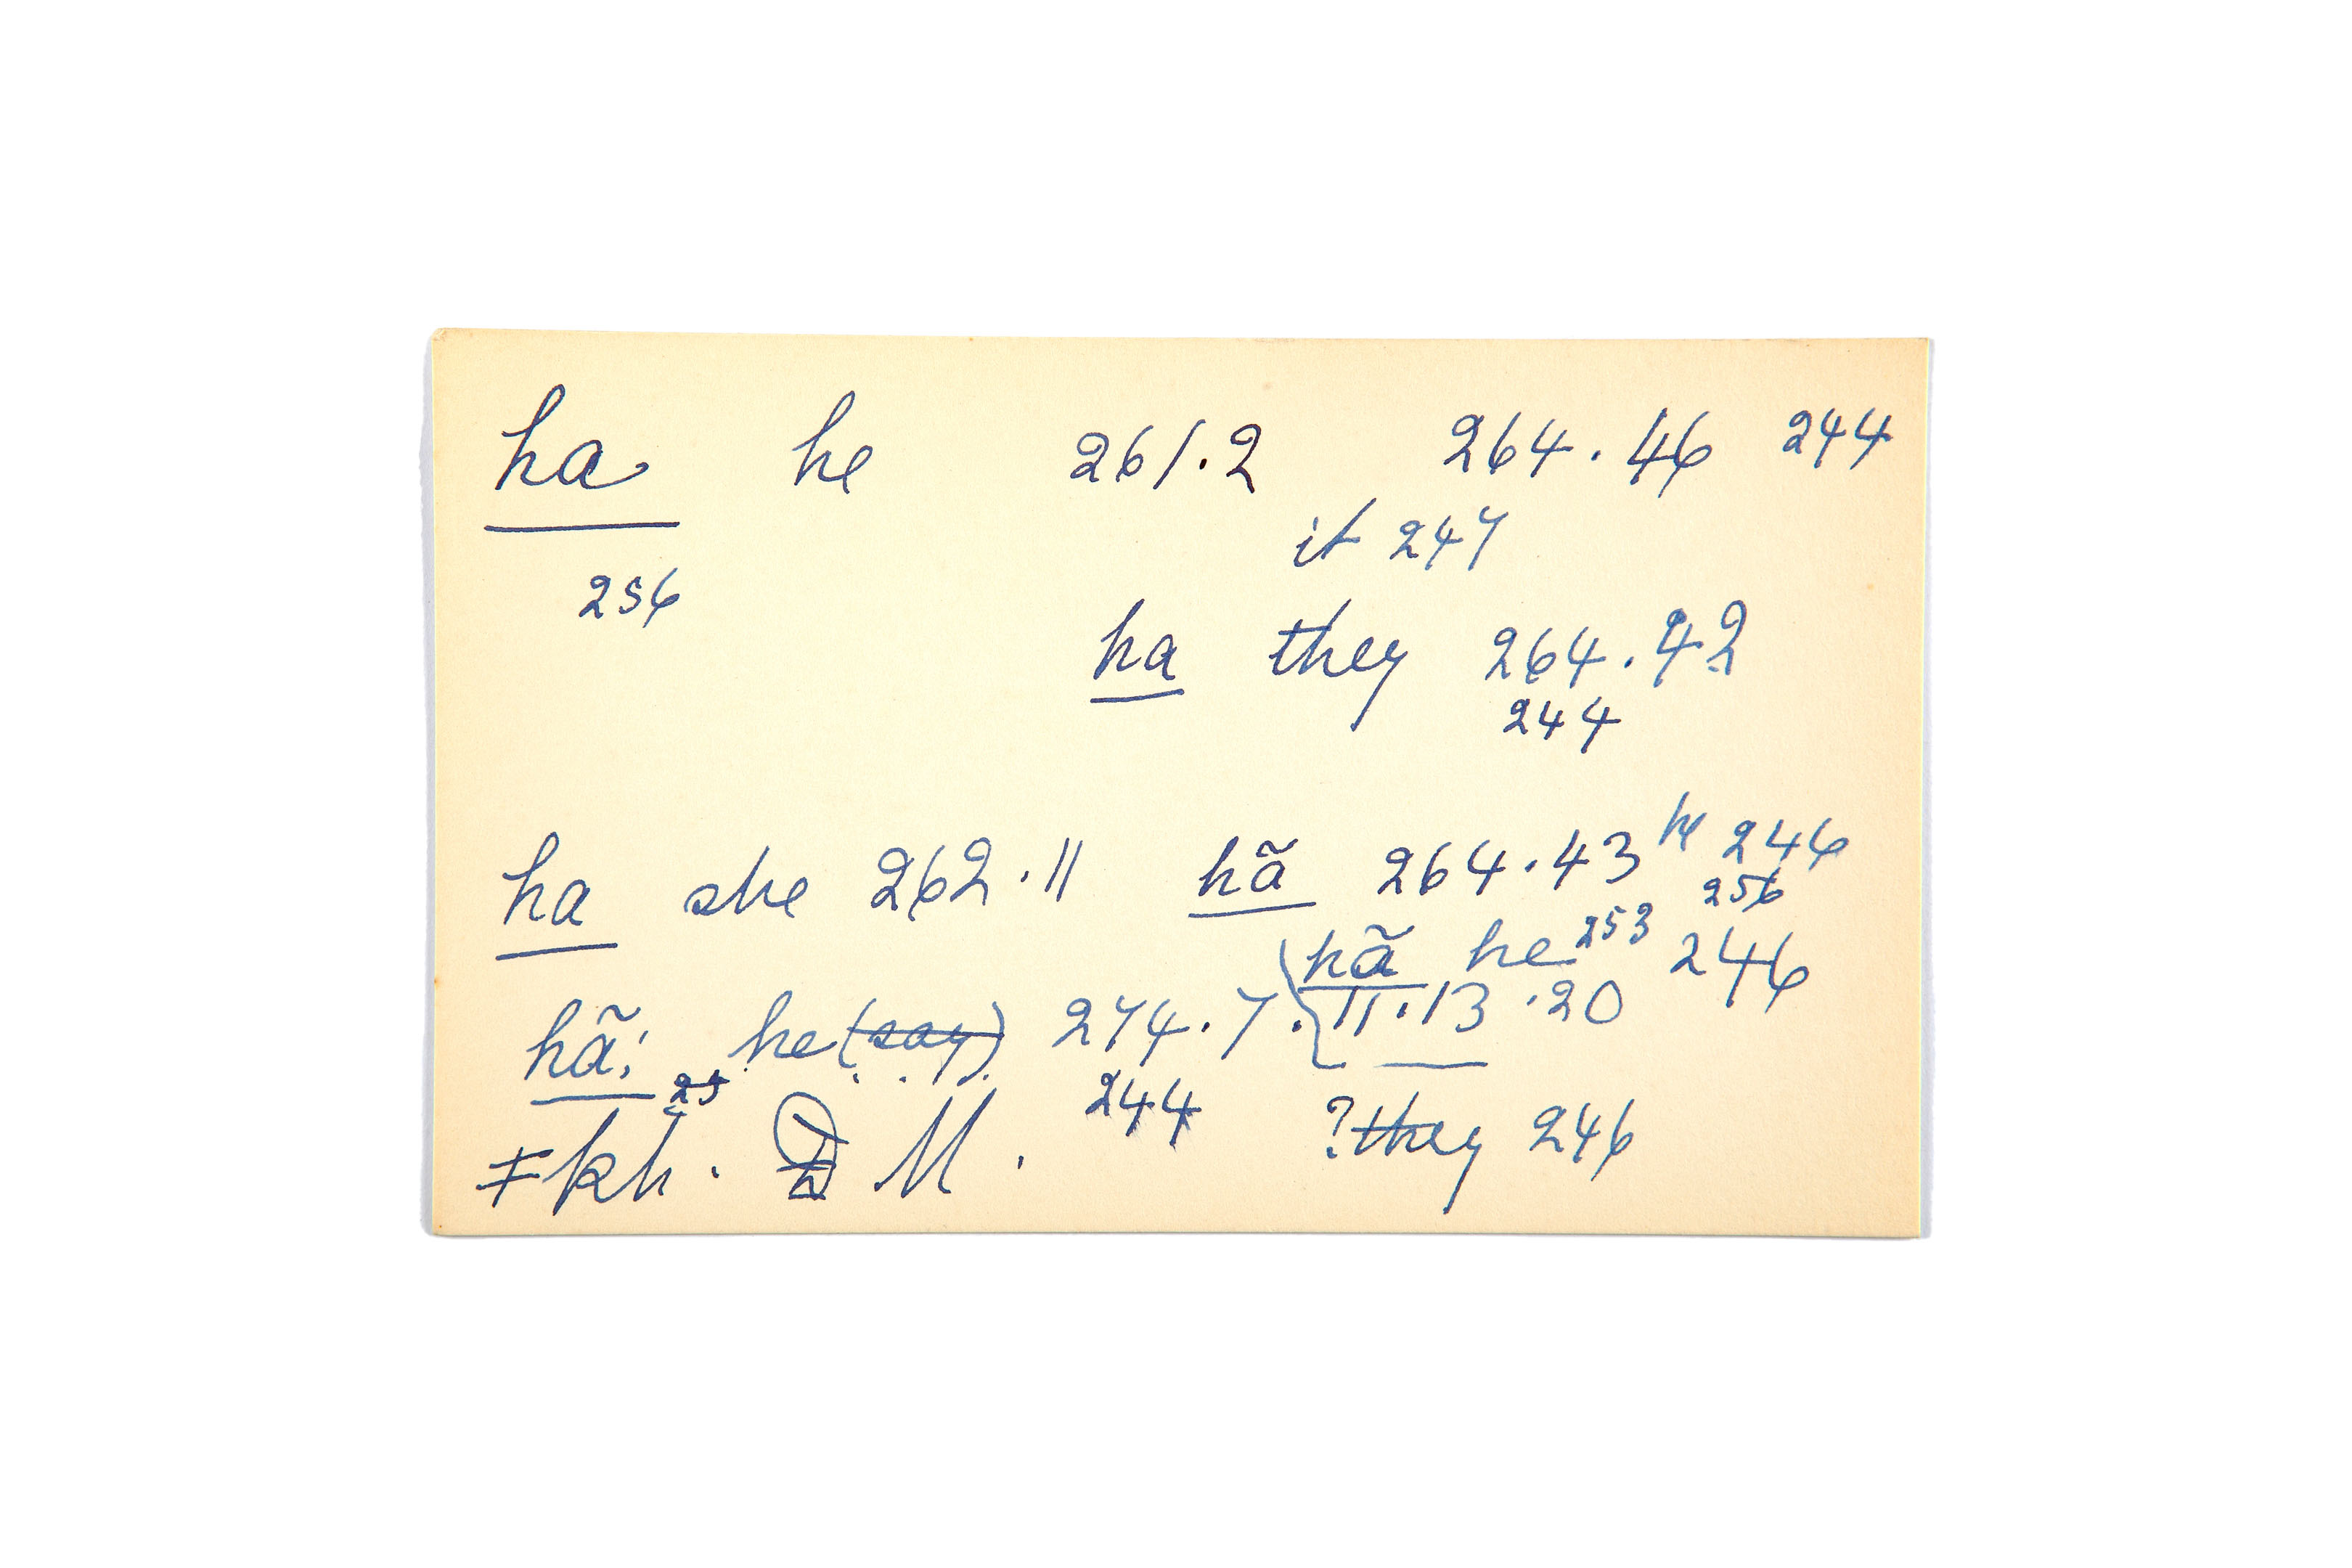 ha he 261.2 264.46 244
it 247
256
ha they 264.42
244
ha she 262.11 hã 264.43 he 246
256
hã he 253 246
hã: he (say) 274.7. 11.13.20
25
244 ?they 246
ǂkh. D M.